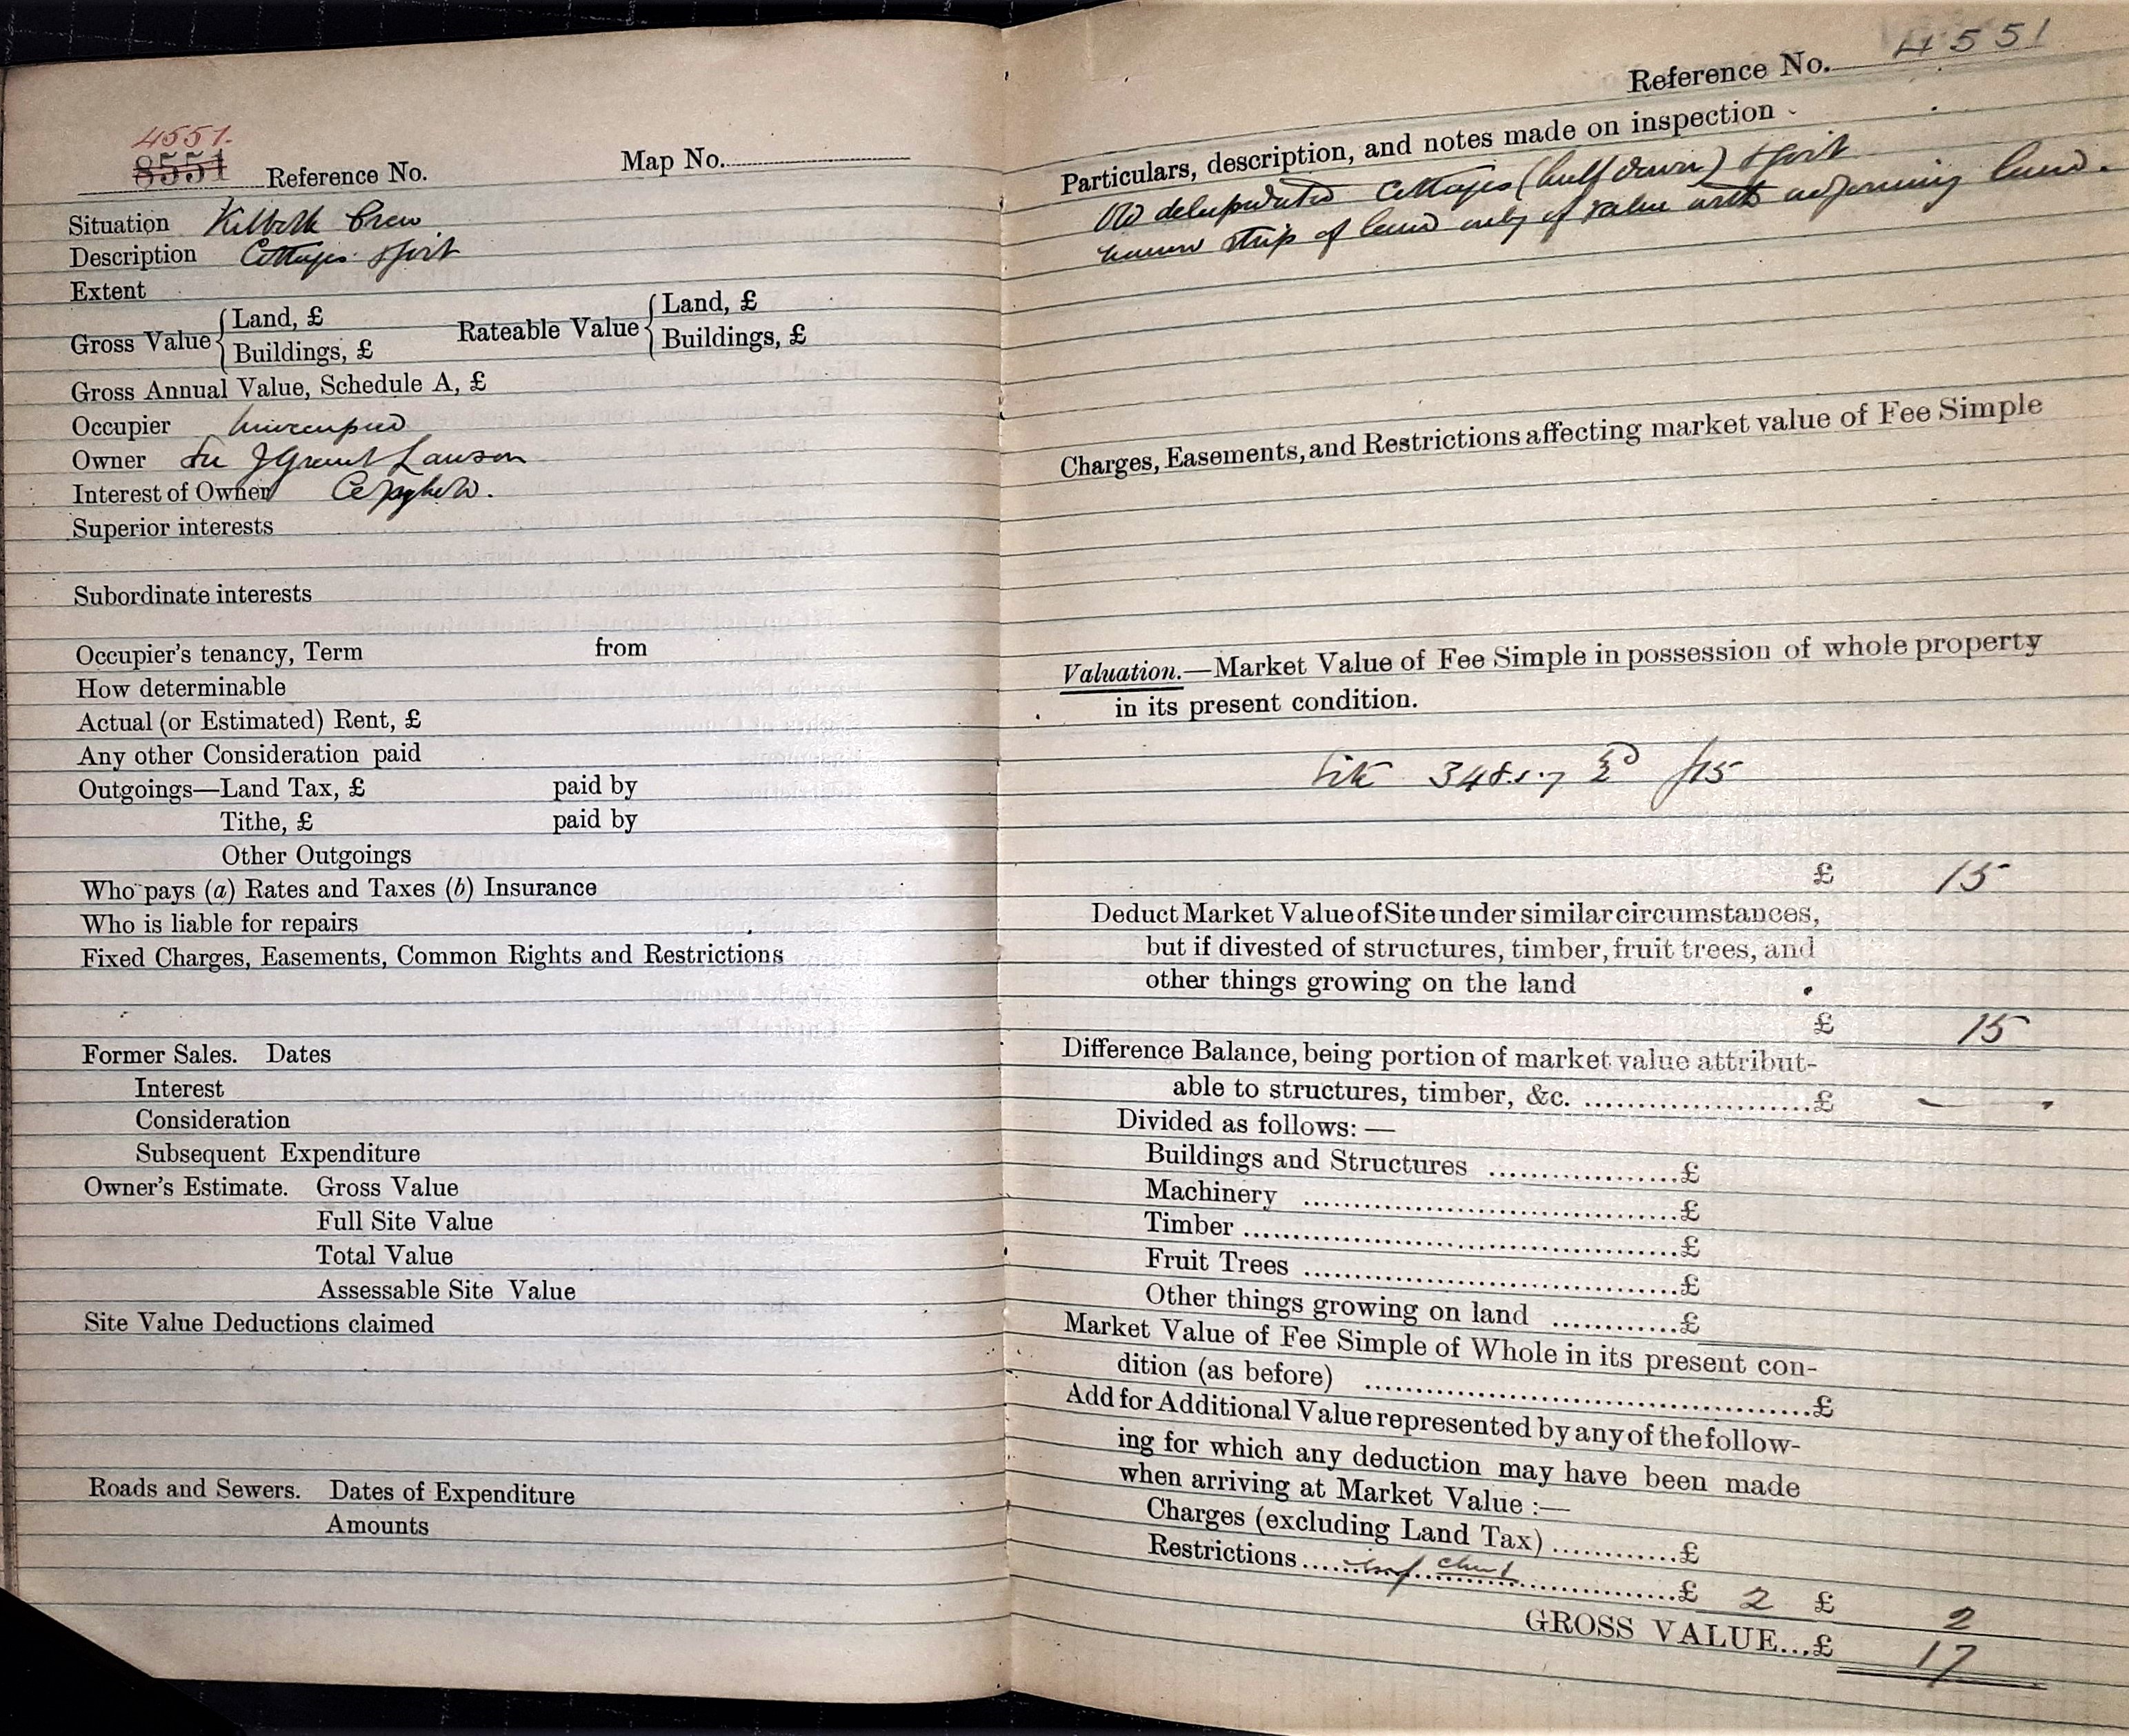 4551.
8551 Reference No. Map No.
Situation Kilburk Crew
Description Cottages & pit
Extent
Gross Value { Land, £ Rateable Value { Land, £
Buildings, £ Buildings, £
Gross Annual Value, Schedule A, £
Occupier Unoccupied
Owner Sir J Grant Lawson
Interest of Owner Copyhold.
Superior interests
Subordinate interests
Occupier's tenancy, Term from
How determinable
Actual (or Estimated) Rent, £
Any other Consideration paid
Outgoings—Land Tax, £ paid by
Tithe, £ paid by
Other Outgoings
Who pays (a) Rates and Taxes (b) Insurance
Who is liable for repairs
Fixed Charges, Easements, Common Rights and Restrictions
Former Sales. Dates
Interest
Consideration
Subsequent Expenditure
Owner's Estimate. Gross Value
Full Site Value
Total Value
Assessable Site Value
Site Value Deductions claimed
Roads and Sewers. Dates of Expenditure
Amounts
Reference No. 4551
Particulars, description, and notes made on inspection
Old delapidated Cottages (half down)
narrow strip of land only of value with adjoining land.
Charges, Easements, and Restrictions affecting market value of Fee Simple
Valuation.—Market Value of Fee Simple in possession of whole property
in its present condition.
Site 348 s.y £15
£ 15
Deduct Market Value of Site under similar circumstances,
but if divested of structures, timber, fruit trees, and
other things growing on the land
£ 15
Difference Balance, being portion of market value attribut-
able to structures, timber, &c. £ —
Divided as follows: —
Buildings and Structures £
Machinery £
Timber £
Fruit Trees £
Other things growing on land £
Market Value of Fee Simple of Whole in its present con-
dition (as before) £
Add for Additional Value represented by any of the follow-
ing for which any deduction may have been made
when arriving at Market Value :—
Charges (excluding Land Tax) £
Restrictions £ 2 £ 2
GROSS VALUE...£ 17